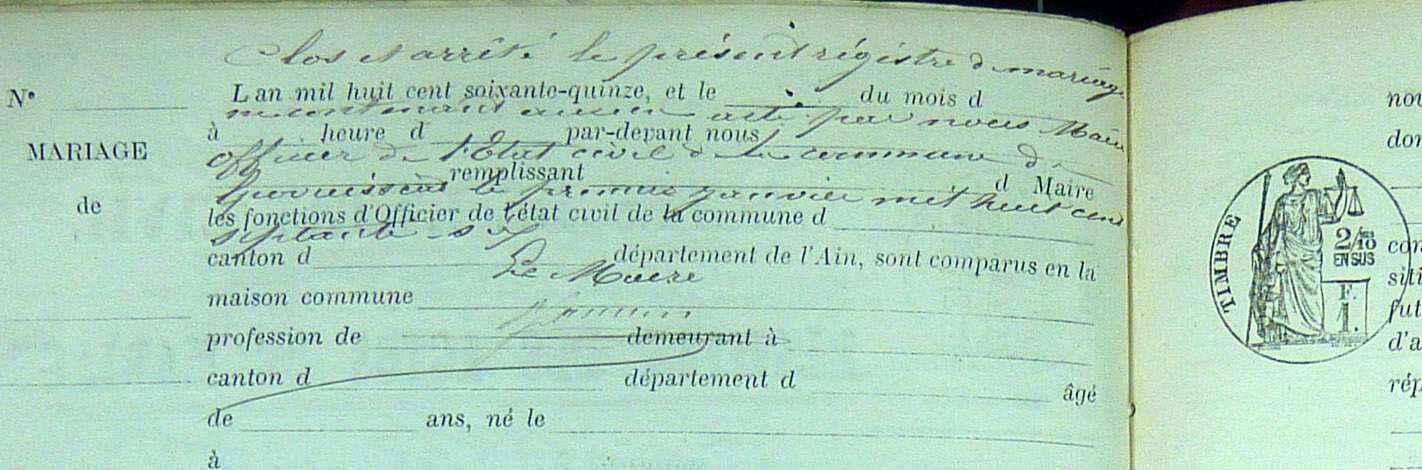 Clos et arrêté le présent régistre d mariage
N°
L'an mil huit cent soixante-quinze, et le du mois d
ne contenant aucun acte par nous Maire
à heure d par-devant nous
MARIAGE
officier de l'Etat civil d la commune de
remplissant d Maire
le premier janvier mil huit cent
de
les fonctions d'Officier de l'état civil de la commune d
septante six
canton d département de l'Ain, sont comparus en la
Le Maire
maison commune
profession de demeurant à
canton d département d âgé
de ans, né le
à
TIMBRE
2/10 EN SUS
F.
1.
nou
don
con
siti
fut
d'a
rép